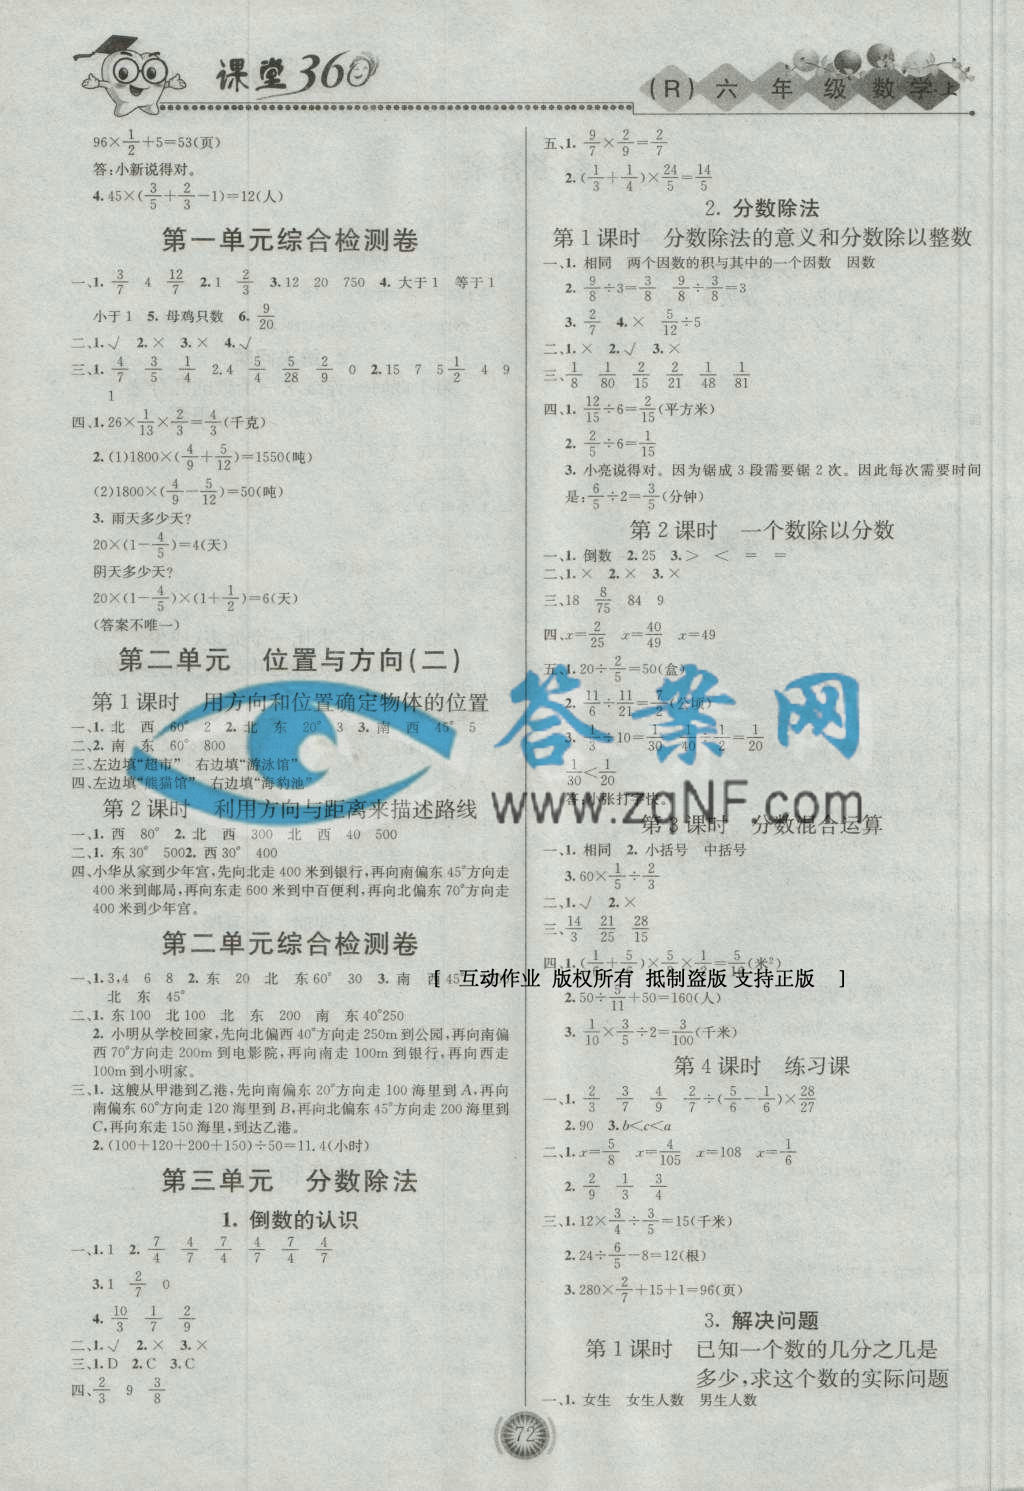 课堂360
(R)六年级数学上
96×1/2+5=53(页)
答:小新说得对。
4.45×(3/5+2/3-1)=12(人)
第一单元综合检测卷
一、1. 3/7 4 12/7 2.1 2/3 3.12 20 750 4. 大于1 等于1
小于1 5. 母鸡只数 6. 9/20
二、1.√ 2.× 3.× 4.√
三、1. 4/7 3/5 1/4 2.4 5/4 5/28 2/9 0 2.15 7 5 1/2 4 9
1
四、1.26×1/13×2/3=4/3(千克)
2.(1)1800×(4/9+5/12)=1550(吨)
(2)1800×(4/9-5/12)=50(吨)
3. 雨天多少天?
20×(1-4/5)=4(天)
阴天多少天?
20×(1-4/5)×(1+1/2)=6(天)
(答案不唯一)
第二单元 位置与方向(二)
第1课时 用方向和位置确定物体的位置
一、1. 北 西 60° 2 2. 北 东 20° 3 3. 南 西 45° 5
二、2. 南 东 60° 800
三、左边填“超市” 右边填“游泳馆”
四、左边填“熊猫馆” 右边填“海豹池”
第2课时 利用方向与距离来描述路线
一、1. 西 80° 2. 北 西 300 北 西 40 500
二、1. 东30° 500 2. 西30° 400
四、小华从家到少年宫,先向北走400米到银行,再向南偏东45°方向走
400米到邮局,再向东走600米到中百便利,再向北偏东70°方向走
400米到少年宫。
第二单元综合检测卷
一、1. 3,4 6 8 2. 东 20 北东60° 30 3. 南 西45°
北 东 45°
二、1. 东100 北东100 北东 200 南东40°250
2. 小明从学校回家,先向北偏西40°方向走250m到公园,再向南偏
西70°方向走200m到电影院,再向南走100m到银行,再向西走
100m到小明家。
三、1. 这艘从甲港到乙港,先向南偏东20°方向走100海里到A,再向
南偏东60°方向走120海里到B,再向北偏东45°方向走200海里到
C,再向东走150海里,到达乙港。
2.(100+120+200+150)÷50=11.4(小时)
第三单元 分数除法
1. 倒数的认识
一、1.1 2. 7/4 4/7 7/4 4/7 7/4 4/7
3.1 2/7 0
4. 10/3 1/7 2/9
二、1.√ 2.× 3.×
三、1.D 2.C 3.C
四、2/3 9 3/8
五、1. 9/7×2/9=2/7
2.(1/3+1/4)×24/5=14/5
2. 分数除法
第1课时 分数除法的意义和分数除以整数
一、1. 相同 两个因数的积与其中的一个因数 因数
2. 9/8÷3=3/8 9/8÷3/8=3
3. 2/7 4.× 5/12÷5
二、1.× 2.√ 3.×
三、1/8 1/80 2/15 2/21 1/48 1/81
四、1. 12/15÷6=2/15(平方米)
2. 2/5÷6=1/15
3. 小亮说得对。因为锯成3段需要锯2次。因此每次需要时间
是:6/5÷2=3/5(分钟)
第2课时 一个数除以分数
一、1. 倒数 2.25 3.> < = =
二、1.× 2.× 3.×
三、18 8/75 84 9
四、x=2/25 x=40/49 x=49
五、1.20÷2/5=50(盒)
2. 6/11÷11/21=7/2(公顷)
3. 1/3÷10=1/30 1/40÷1/2=1/20
1/30<1/20
答:小张打字快。
第3课时 分数混合运算
一、1. 相同 2. 小括号 中括号
3.60×1/5÷2/3
二、1.√ 2.×
三、14/3 21/25 28/15
2.50÷5/10+50=160(人)
3. 1/10×3/5÷2=3/100(千米)
第4课时 练习课
一、1. 2/3 3/7 4/9 2/7÷(5/6-1/6)×28/27
2.90 3.b<c<a
二、1.x=5/8 x=4/105 x=108 x=1/6
2. 2/9 1/3 3/4
三、1.12×3/4÷3/5=15(千米)
2.24÷6/5-8=12(根)
3.280×2/7+15+1=96(页)
3. 解决问题
第1课时 已知一个数的几分之几是
多少,求这个数的实际问题
一、1. 女生 女生人数 男生人数
72
答案网
www.zqNF.com
[ 互动作业 版权所有 抵制盗版 支持正版 ]